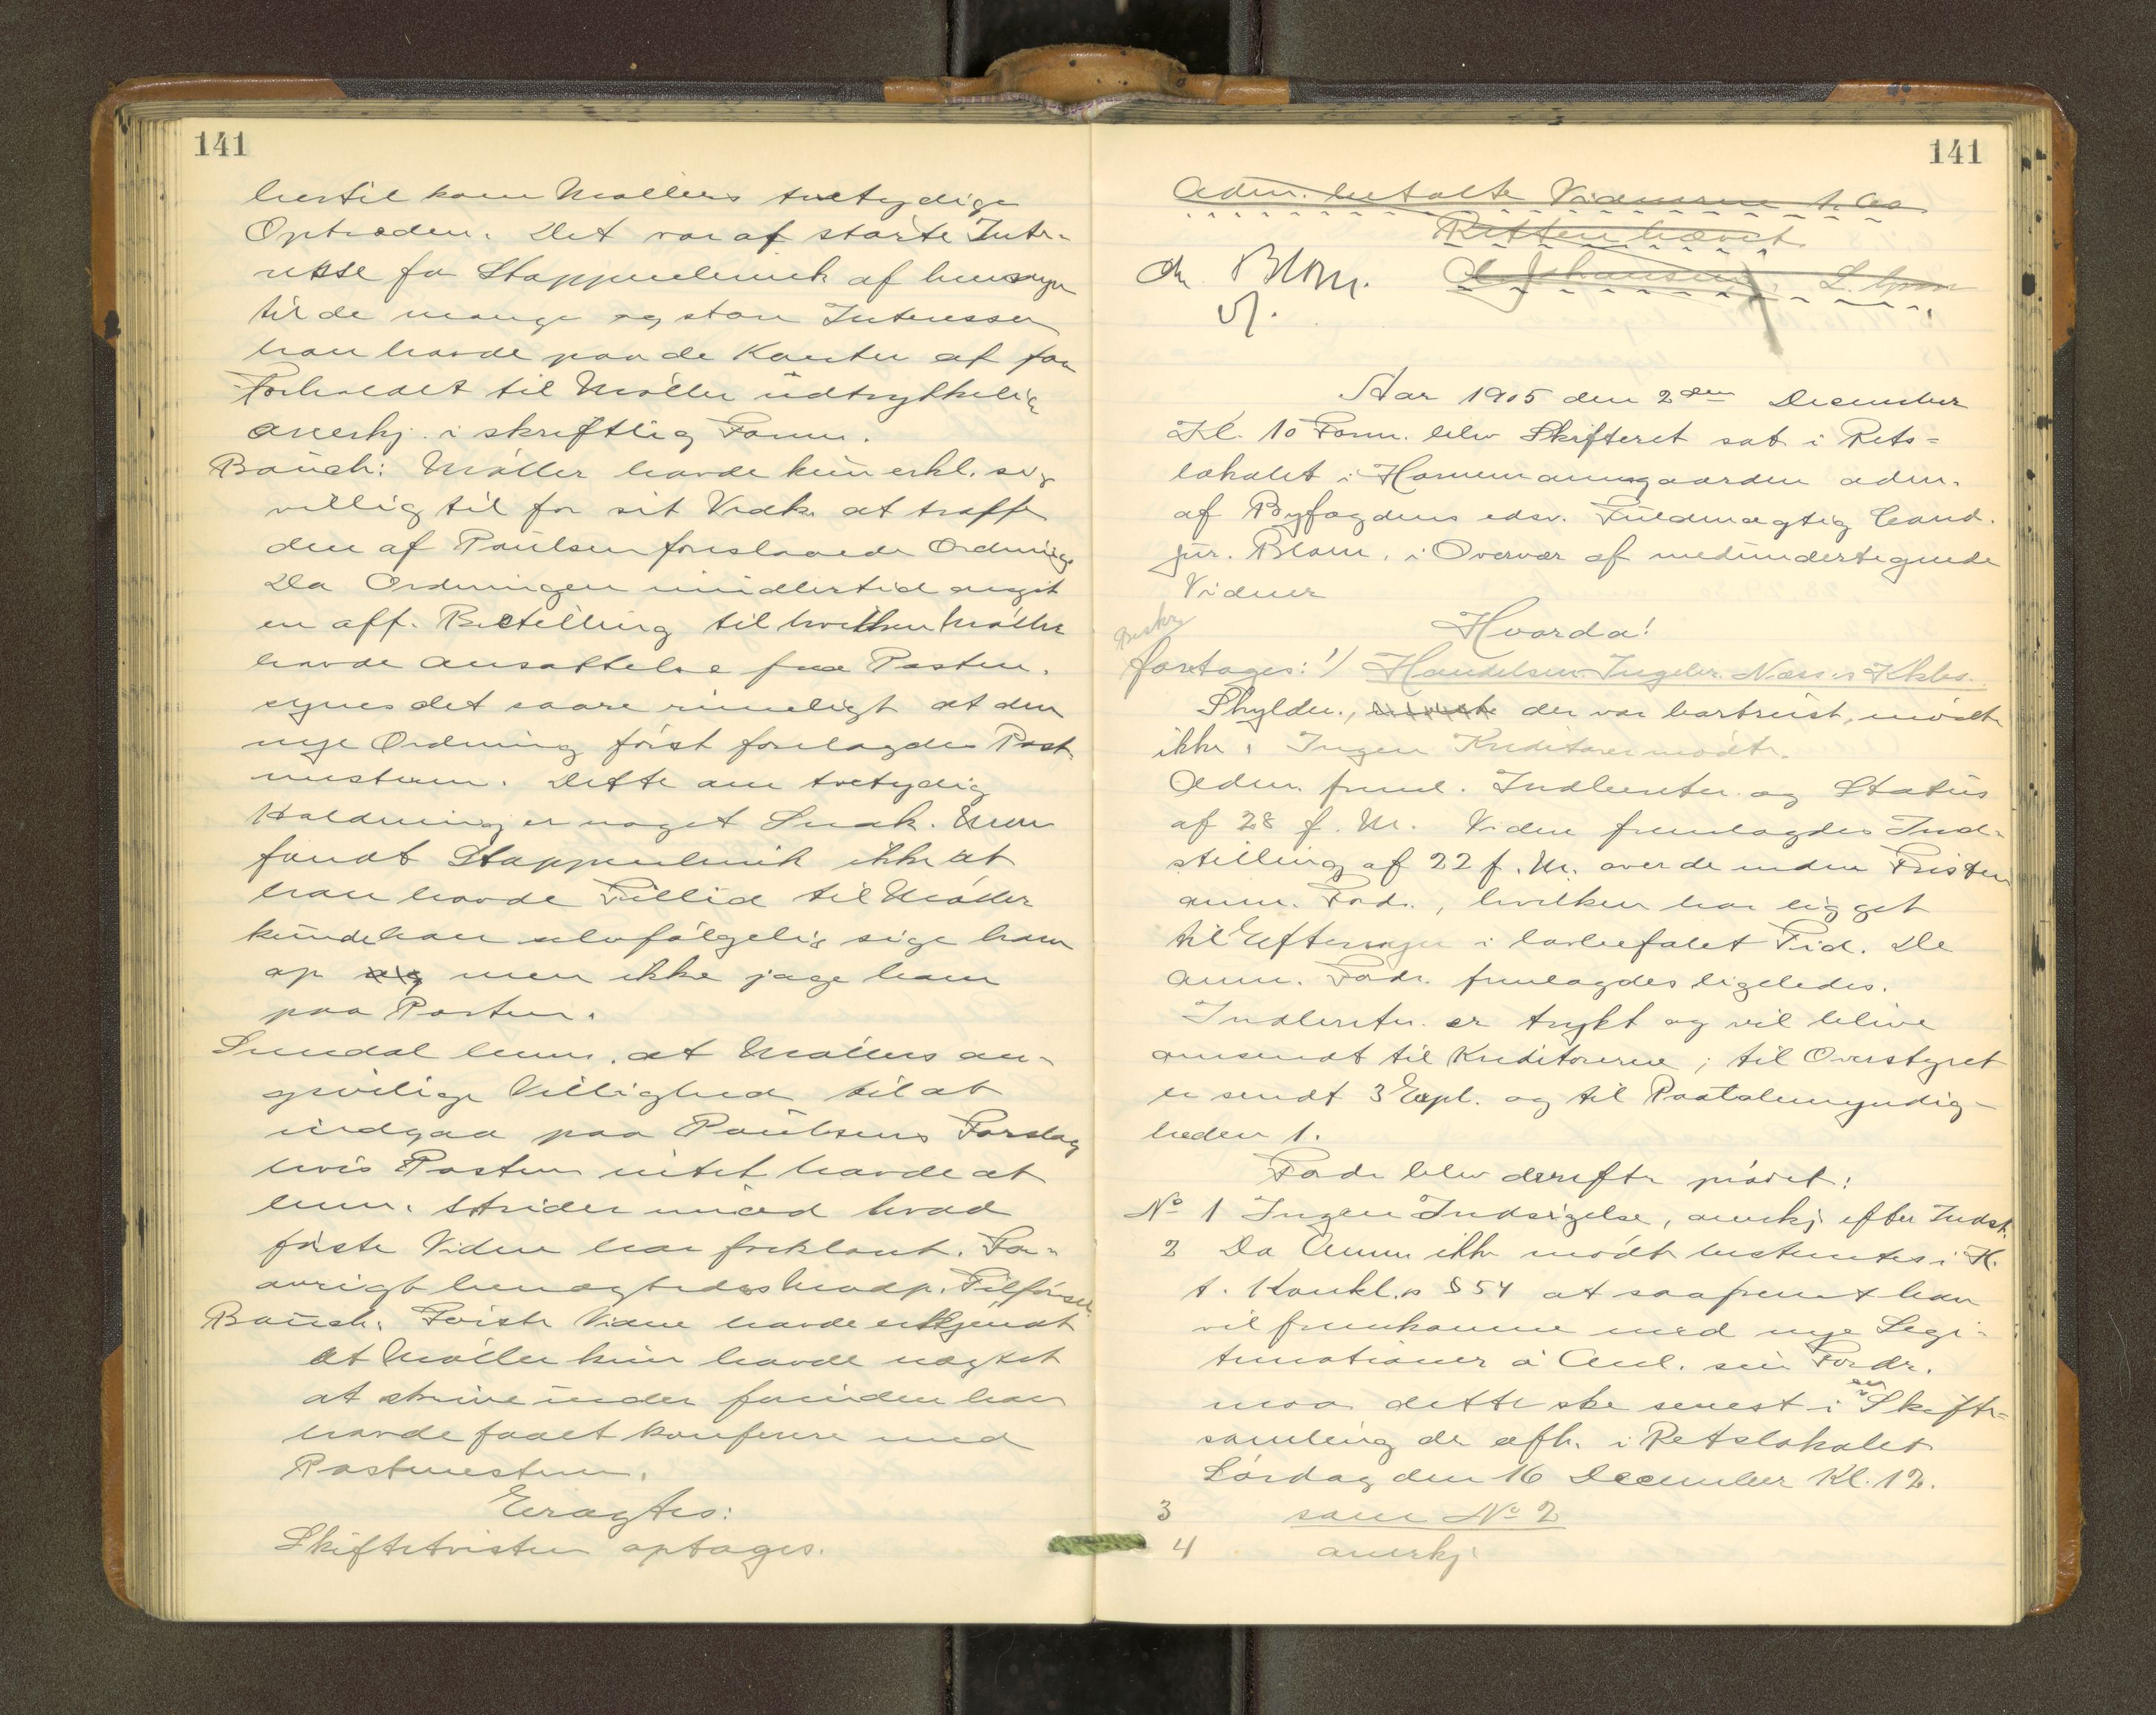 141
hertil kom Møllers tvetydige
Optræden. Det var af største Inte-
resse for Stoppenbrink af hensyn
til de mange og store Interesser
han havde paa de Kanter at faa
Forholdet til Møller udtrykkelig
anerkj. i skriftlig Form.
Bauch: Møller havde kun erkl. sig
villig til for sit Vedk. at træffe
den af Paulsen foreslaaede Ordning
Da Ordningen imidlertid angik
en off. Bestilling til hvilken Møller
havde Ansættelse fra Posten.
synes det saare rimeligt at den
nye Ordning først forelagdes Post
mesteren. Dette om tvetydig
Holdning er noget Snak. Men
fandt Stoppenbrink ikke at
han havde Tillid til Møller
kunde han selvfølgelig sige ham
op og men ikke jage ham
paa Porten.
Sundal bem. at Møllers an-
givelige Villighed til at
indgaa paa Paulsens Forslag
hvis Posten intet havde at
bem. strider mod hvad
første Vidne har forklaret. For-
øvrigt benægtedes Modp. Tilførsel
Bauch. Første Vidne havde erkjendt
at Møller kun havde nægtet
at skrive under førinden han
havde faaet konferere med
Postmesteren.
Eragtes:
Skiftetvisten optages.
141
Adm. betalte Vidnerne 1.60
Retten hævet
Chr Blom. O. Johansen. L.
Vf.
Aar 1905 den 2den December
Kl. 10 Form. blev Skifteret sat i Rets=
lokalet i Hornemannsgaarden adm.
af Byfogdens edsv. Fuldmægtig Cand.
jur. Blom, i Overvær af medundertegnede
Vidner
Beskr
Hvorda!
foretages: 1/ Handelsm. Ingebr. Næss's Kkbo.
Skyldn., der var bortreist, mødte
ikke. Ingen Kreditorer mødte.
Adm. freml. Indberetn. og Status
af 28 f. M. Videre fremlagdes Ind-
stilling af 22 f. M. over de inden Fristen
anm. Fordr., hvilken har ligget
til Eftersyn i lovbefalet Tid. De
anm. Fordr. fremlagdes ligeledes.
Indberetn. er trykt og vil blive
omsendt til Kreditorerne; til Overstyret
er sendt 3 Expl. og til Paatalemyndig-
heden 1.
Fordr blev derefter prøvet:
No 1 Ingen Indsigelse, anerkj efter Indst.
2 Da Anm ikke mødte bestemtes i H.
t. Konkl.s §54 at saafremt han
vil fremkomme med nye Legi-
timationer i Anl. sin Fordr.
maa dette ske senest i en Skifte-
samling der afh. i Retslokalet
Lørdag den 16 December Kl. 12.
3 som No 2
4 anerkj